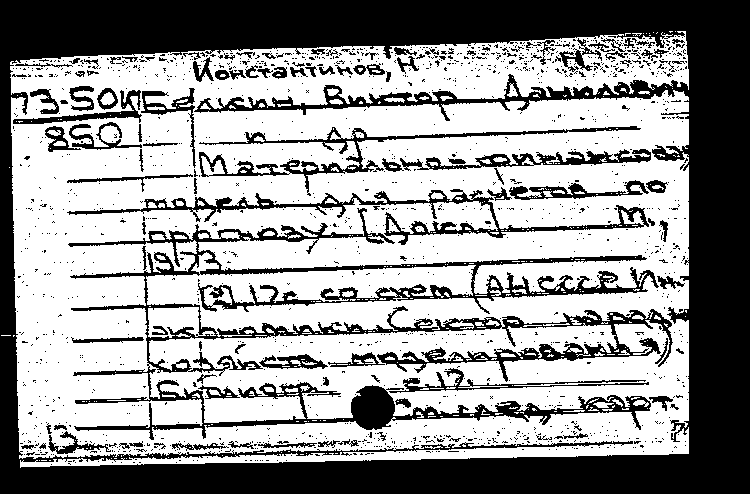 Константинов, Н
73-50К Белкин, Виктор Данилович
850 и др
Материально-финансовая
модель для расчетов по
прогнозу. [Докл.]. М.,
1973.
[2], 17 с со схем (АН СССР Ин-т
экономики. Сектор народн
хозяйств. моделирования).
Библиогр: с. 17.
См. след. карт.
13